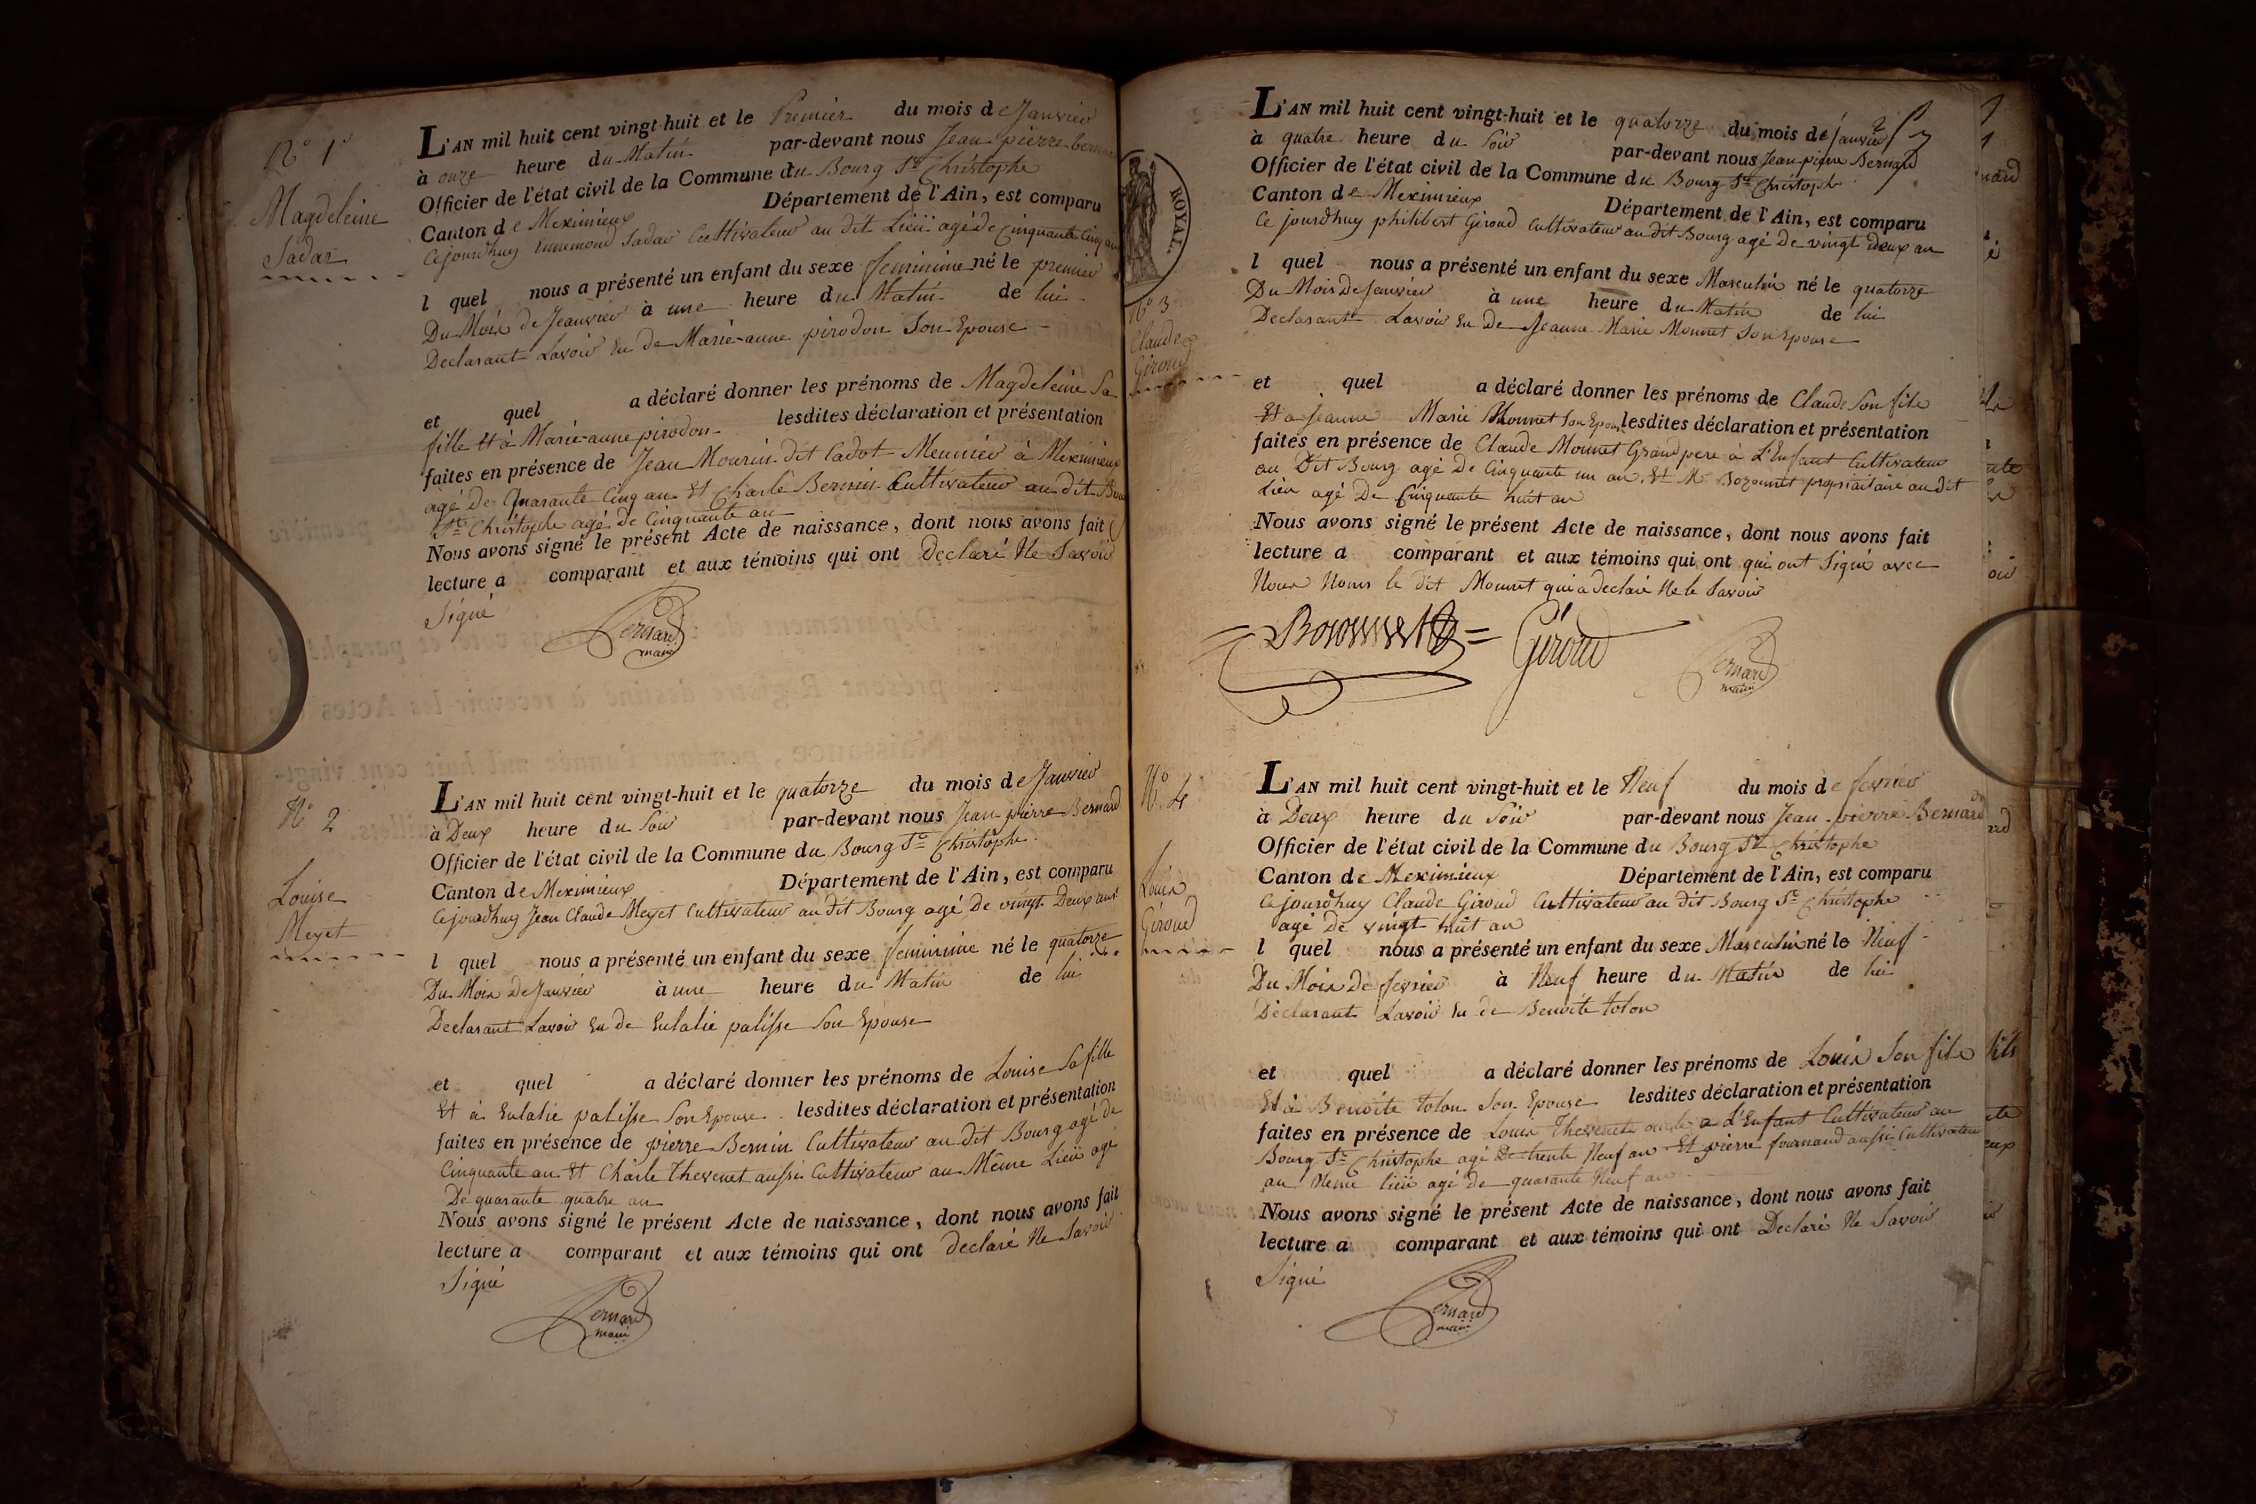 N° 1er
Magdeleine
Sadar
L'AN mil huit cent vingt-huit et le Premier du mois de Janvier
à onze heure du Matin par-devant nous Jean pierre bernard
Officier de l'état civil de la Commune du Bourg St Christophe
Canton de Meximieux Département de l'Ain, est comparu
Cejourdhuy Ennemond Sadar Cultivateur au dit Lieü agé de Cinquante Cinq an
l quel nous a présenté un enfant du sexe feminime né le premier
Du Mois de Jeanvier à une heure du Matin de lui
Declarant Lavoir Eu de Marie-anne pirodon Son Epouse
et quel a déclaré donner les prénoms de Magdeleine Sa
fille Et à Marie-anne pirodon lesdites déclaration et présentation
faites en présence de Jean Mourin dit Cadot Meunier à Meximieux
agé De Quarante Cinq an Et Charle Bernin Cultivateur au dit Bourg
St Christophe agé de Cinquante an
Nous avons signé le présent Acte de naissance, dont nous avons fait
lecture a comparant et aux témoins qui ont Declaré Ne Savoir
Signé
Bernard
maire
N° 2
Louise
Meyet
L'AN mil huit cent vingt-huit et le quatorze du mois de Janvier
à Deux heure du Soir par-devant nous Jean pierre Bernard
Officier de l'état civil de la Commune du Bourg St Christophe
Canton de Meximieux Département de l'Ain, est comparu
Cejourdhuy Jean Claude Meyet Cultivateur au dit Bourg agé De vingt Deux ans
l quel nous a présenté un enfant du sexe feminime né le quatorze
Du Mois De Janvier à une heure du Matin de lui
Declarant Lavoir Eu de Eulalie palisse Son Epouse
et quel a déclaré donner les prénoms de Louise Sa fille
Et à Eulalie palisse Son Epouse lesdites déclaration et présentation
faites en présence de pierre Bernin Cultivateur au dit Bourg agé de
Cinquante an Et Charle thevenet aussi Cultivateur au Même Lieü agé
De quarante quatre an
Nous avons signé le présent Acte de naissance, dont nous avons fait
lecture a comparant et aux témoins qui ont declaré Ne Savoir
Signé
Bernard
maire
ROYAL.
N° 3
Claude
Giroud
L'AN mil huit cent vingt-huit et le quatorze du mois de Janvier
à quatre heure du Soir par-devant nous Jean-pierre Bernard
Officier de l'état civil de la Commune du Bourg St Christophe
Canton de Meximieux Département de l'Ain, est comparu
Ce jourdhuy philibert Giroud Cultivateur au dit Bourg agé De vingt Deux an
l quel nous a présenté un enfant du sexe Masculin né le quatorze
Du Mois De Janvier à une heure du Matin de lui
Declarant Lavoir Eu de Jeanne Marie Monnet Son Epouse
et quel a déclaré donner les prénoms de Claude Son fils
Et a Jeanne Marie Monnet Son Epouse lesdites déclaration et présentation
faites en présence de Claude Monnet Grandpere à L'Enfant Cultivateur
au Dit Bourg agé De Cinquante un an, Et Mr Bozonnet propriaitaire au dit
Lieu agé De Cinquante huit an
Nous avons signé le présent Acte de naissance, dont nous avons fait
lecture a comparant et aux témoins qui ont qui ont Signé avec
Nous Nonts le dit Monnet qui a declaré Ne le Savoir
Bozonnet Giroud Bernard
maire
N° 4
Louis
Giroud
L'AN mil huit cent vingt-huit et le Neuf du mois de fevrier
à Deux heure du Soir par-devant nous Jean-pierre Bernard
Officier de l'état civil de la Commune du Bourg St Christophe
Canton de Meximieux Département de l'Ain, est comparu
Cejourdhuy Claude Giroud Cultivateur au dit Bourg St Christophe
agé De vingt huit an
l quel nous a présenté un enfant du sexe Masculin né le Neuf
Du Mois De fevrier à Neuf heure du Matin de lui
Déclarant Lavoir Eu de Benoite tolon
et quel a déclaré donner les prénoms de Louis Son fils
Et à Benoite tolon Son Epouse lesdites déclaration et présentation
faites en présence de Louis Thevenete oncle a L'Enfant Cultivateur au
Bourg St Christophe agé De trente Neuf an Et pierre fournand aussi Cultivateur
au Meme lieü agé de quarante Neuf an
Nous avons signé le présent Acte de naissance, dont nous avons fait
lecture a comparant et aux témoins qui ont Declaré Ne Savoir
Signé
Bernard
maire